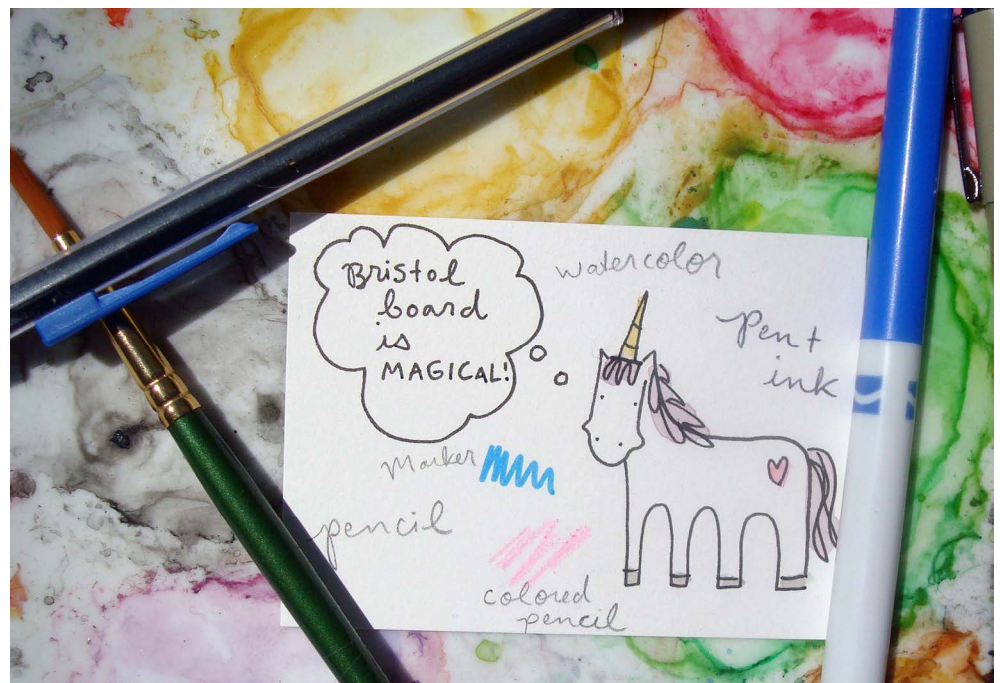 Bristol
board
is
MAGICAL!
watercolor
Pen +
ink
Marker
pencil
colored
pencil